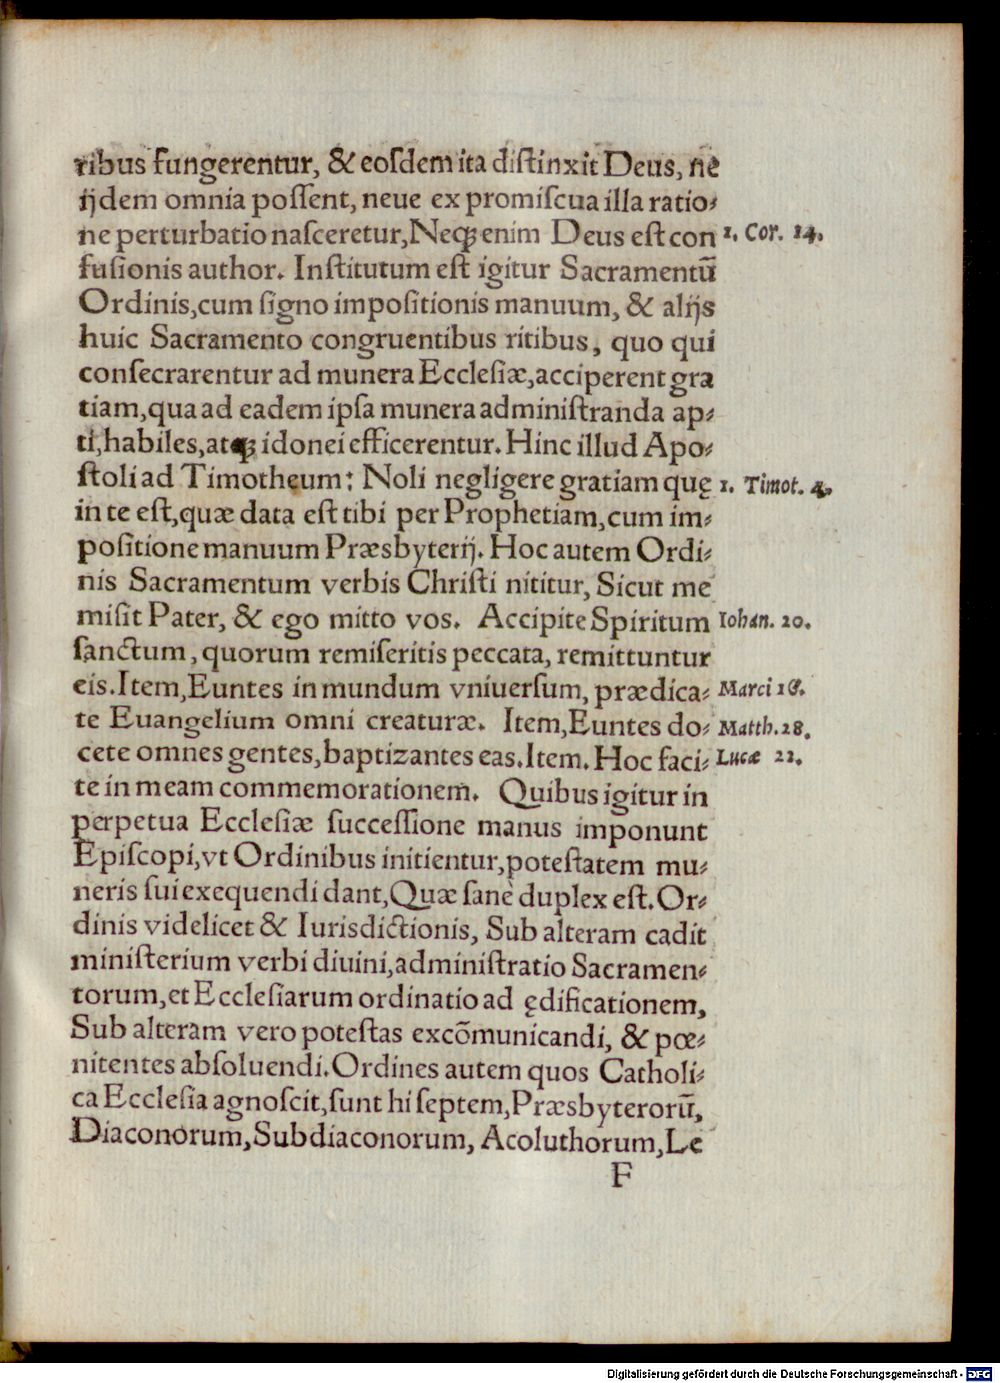 ribus fungerentur, & eoſdem ita diſtinxit Deus, ne
ijdem omnia poſſent, neue ex promiſcua illa ratio-
ne perturbatio naſceretur, Neqꝫ enim Deus eſt con 1. Cor. 14.
fuſionis author. Inſtitutum eſt igitur Sacramentū
Ordinis, cum ſigno impoſitionis manuum, & alijs
huic Sacramento congruentibus ritibus, quo qui
conſecrarentur ad munera Eccleſiæ, acciperent gra
tiam, qua ad eadem ipſa munera adminiſtranda ap-
ti, habiles, atqꝫ idonei efficerentur. Hinc illud Apo-
ſtoli ad Timotheum: Noli negligere gratiam quę 1. Timot. 4.
in te eſt, quæ data eſt tibi per Prophetiam, cum im-
poſitione manuum Præsbyterij. Hoc autem Ordi-
nis Sacramentum verbis Chriſti nititur, Sicut me
miſit Pater, & ego mitto vos. Accipite Spiritum Iohan. 20.
ſanctum, quorum remiſeritis peccata, remittuntur
eis. Item, Euntes in mundum vniuerſum, prædica- Marci 16.
te Euangelium omni creaturæ. Item, Euntes do- Matth. 28.
cete omnes gentes, baptizantes eas. Item. Hoc faci- Lucæ 22.
te in meam commemorationem. Quibus igitur in
perpetua Eccleſiæ ſucceſſione manus imponunt
Epiſcopi, vt Ordinibus initientur, poteſtatem mu-
neris ſui exequendi dant, Quæ ſanè duplex eſt. Or-
dinis videlicet & Iurisdictionis, Sub alteram cadit
miniſterium verbi diuini, adminiſtratio Sacramen-
torum, et Eccleſiarum ordinatio ad ędificationem,
Sub alteram vero poteſtas excōmunicandi, & pœ-
nitentes abſoluendi. Ordines autem quos Catholi-
ca Eccleſia agnoſcit, ſunt hi ſeptem, Præsbyterorū,
Diaconorum, Subdiaconorum, Acoluthorum, Le
F
Digitalisierung gefördert durch die Deutsche Forschungsgemeinschaft - DFG